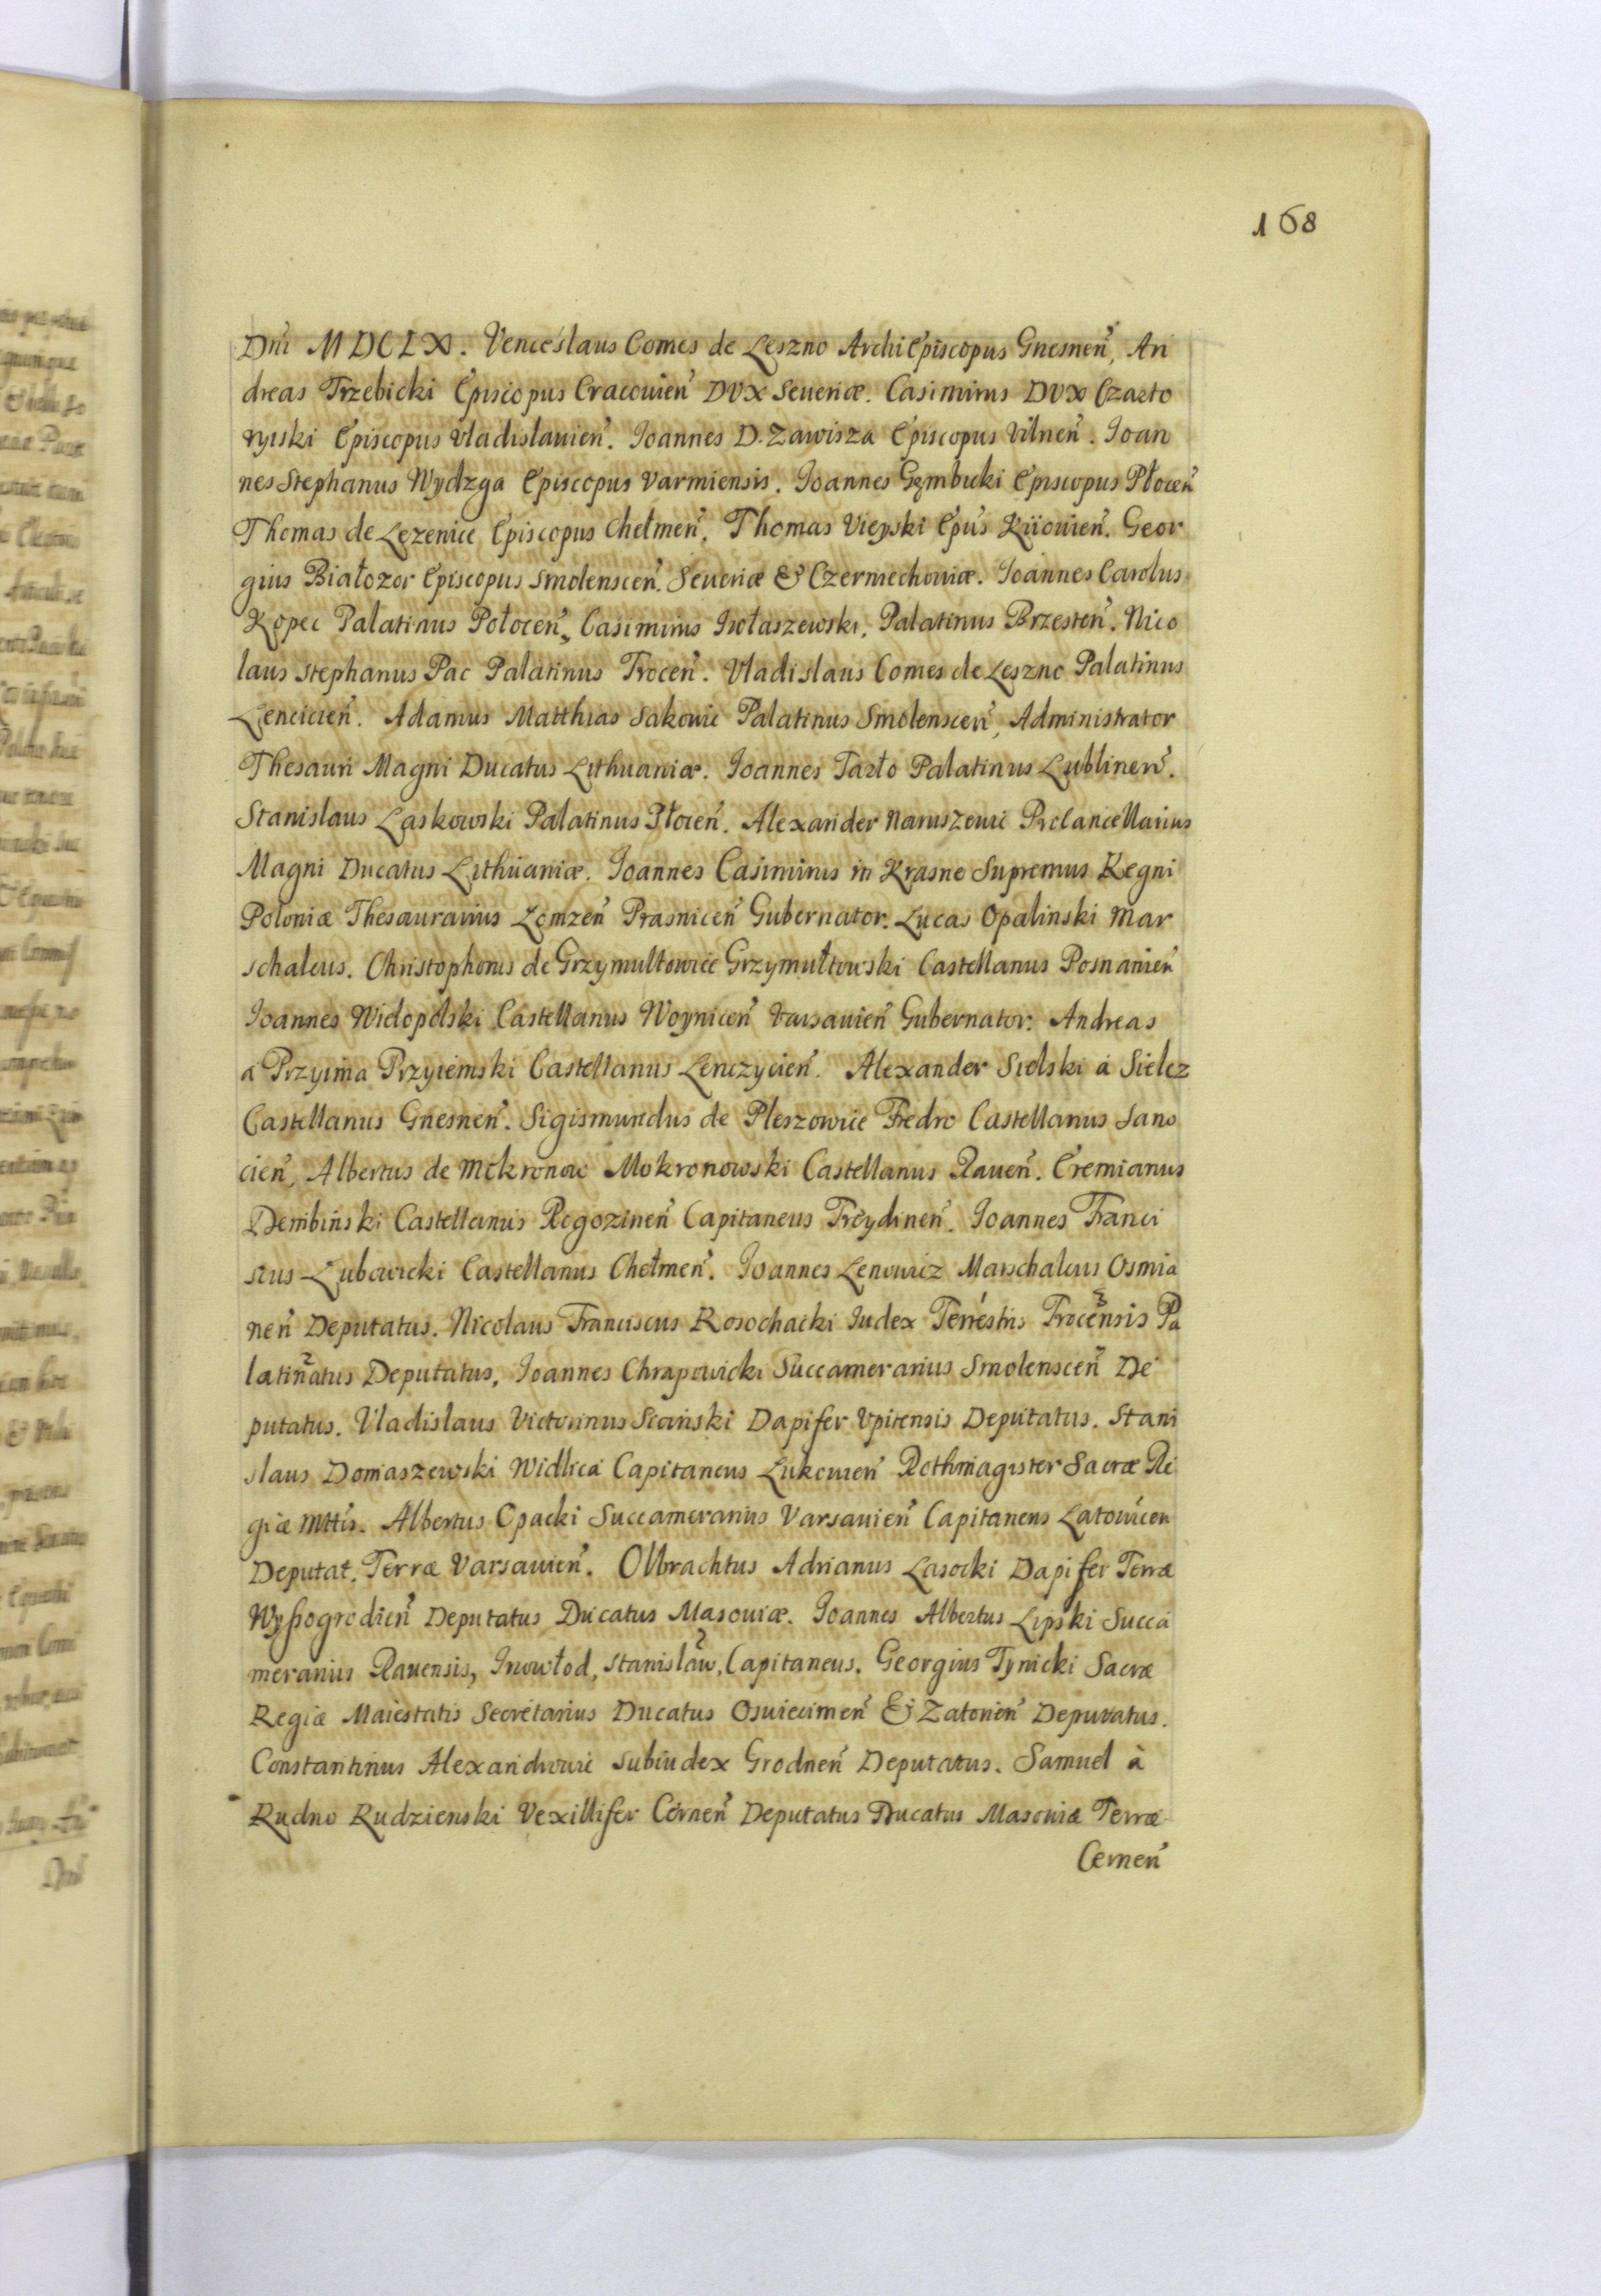 168
Dni MDCLX. Venceslaus Comes de Leszno ArchiEpiscopus Gnesneń, An
dreas Trzebicki Episcopus Cracovień DVX Severiæ. Casimirus DVX Czarto
ryiski Episcopus Vladislavień. Ioannes D. Zawisza Episcopus Vilneń. Ioan
nes Stephanus Wydzga Episcopus Varmiensis. Ioannes Gęmbicki Episcopus Płoceń
Thomas de Lezenice Episcopus Chełmeń. Thomas Vieyski Epus Kiiovień. Geor
gius Białozor Episcopus Smolensceń. Severiæ & Czerniechoviæ. Ioannes Carolus
Kopec Palatinus Połoceń, Casimirus Irołaszewski, Palatinus Brzesteń. Nico
laus Stephanus Pac Palatinus Troceń. Vladislaus Comes de Leszno Palatinus
Lencicień. Adamus Matthias Sakowic Palatinus Smolensceń, Administrator
Thesauri Magni Ducatus Lithuaniæ. Ioannes Tarło Palatinus Lublineń.
Stanislaus Laskowski Palatinus Płoceń. Alexander Naruszewic ProCancellarius
Magni Ducatus Lithuaniæ. Ioannes Casimirus in Krasne Supremus Regni
Poloniæ Thesaurarius Lomzeń Prasniceń Gubernator. Lucas Opalinski Mar
schalcus. Christophorus de Grzymultowice Grzymułtowski Castellanus Posnanień
Ioannes Wielopolski Castellanus Woyniceń Varsavień Gubernator. Andreas
a Przyima Przyiemski Castellanus Lenczycień. Alexander Sielski á Sielcz
Castellanus Gnesneń. Sigismundus de Pleszowice Fredro Castellanus Sano
cień, Albertus de Mokronow Mokronowski Castellanus Raveń. Eremianus
Dembiński Castellanus Rogozineń Capitaneus Treydineń. Ioannes Franci
scus Lubowicki Castellanus Chełmeń. Ioannes Lenowicz Marschalcus Osmia
neń Deputatus. Nicolaus Franciscus Rosochacki Iudex Terrestris Trocensis Pa
latinatus Deputatus, Ioannes Chrapowicki Succamerarius Smolensceń De
putatus. Vladislaus Victorinus Scański Dapifer Vpitensis Deputatus. Stani
slaus Domaszewski Widlica Capitaneus Lukowień Rothmagister Sacræ Re
giæ Mttis. Albertus Opacki Succamerarius Varsavień Capitaneus Latowicen
Deputat. Terræ Varsavień. Olbrachtus Adrianus Lasocki Dapifer Terræ
Wyszogrodień Deputatus Ducatus Masoviæ. Ioannes Albertus Lipski Succa
merarius Ravensis, Inowłod, Stanislaw, Capitaneus. Georgius Tynicki Sacræ
Regiæ Maiestatis Secretarius Ducatus Osviecimeń & Zatorień Deputatus.
Constantinus Alexandrowic Subiudex Grodneń Deputatus. Samuel à
Rudno Rudzienski Vexillifer Cerneń Deputatus Ducatus Masoviæ Terræ
Cerneń